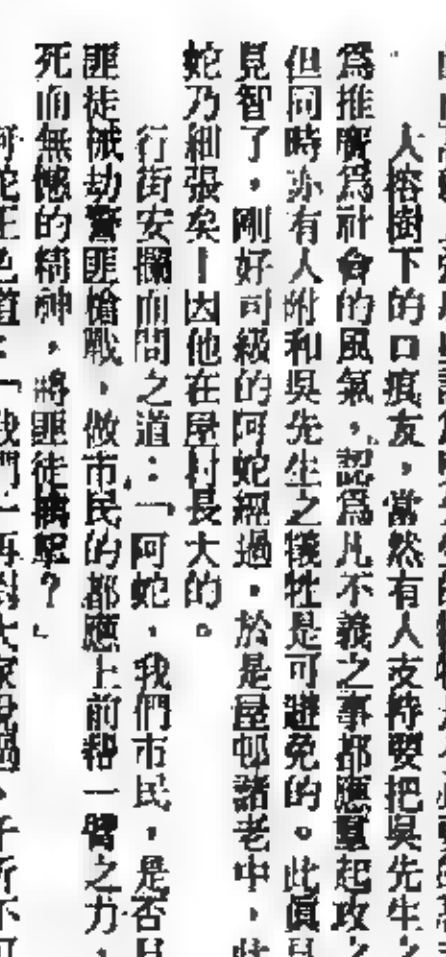 大榕樹下的口痕友，當然有人支持要把吳先生之
爲推廣爲社會的風氣，認爲凡不義之事都應羣起攻之
但同時亦有人附和吳先生之犧牲是可避免的。此眞見
見智了，剛好司級的阿蛇經過，於是屋邨諸老中，
蛇乃細張矣！因他在屋村長大的。
行街安攔而問之道：「阿蛇，我們市民，是否見
匪徒械劫警匪槍戰，做市民的都應上前帮一臂之力，
死而無憾的精神，將匪徒擊？」
阿蛇正色道：「我們一再對大家說過，